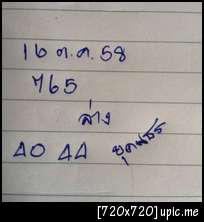 16 ต.ค. 58
765
ล่าง
40 44
[720x720] upic.me